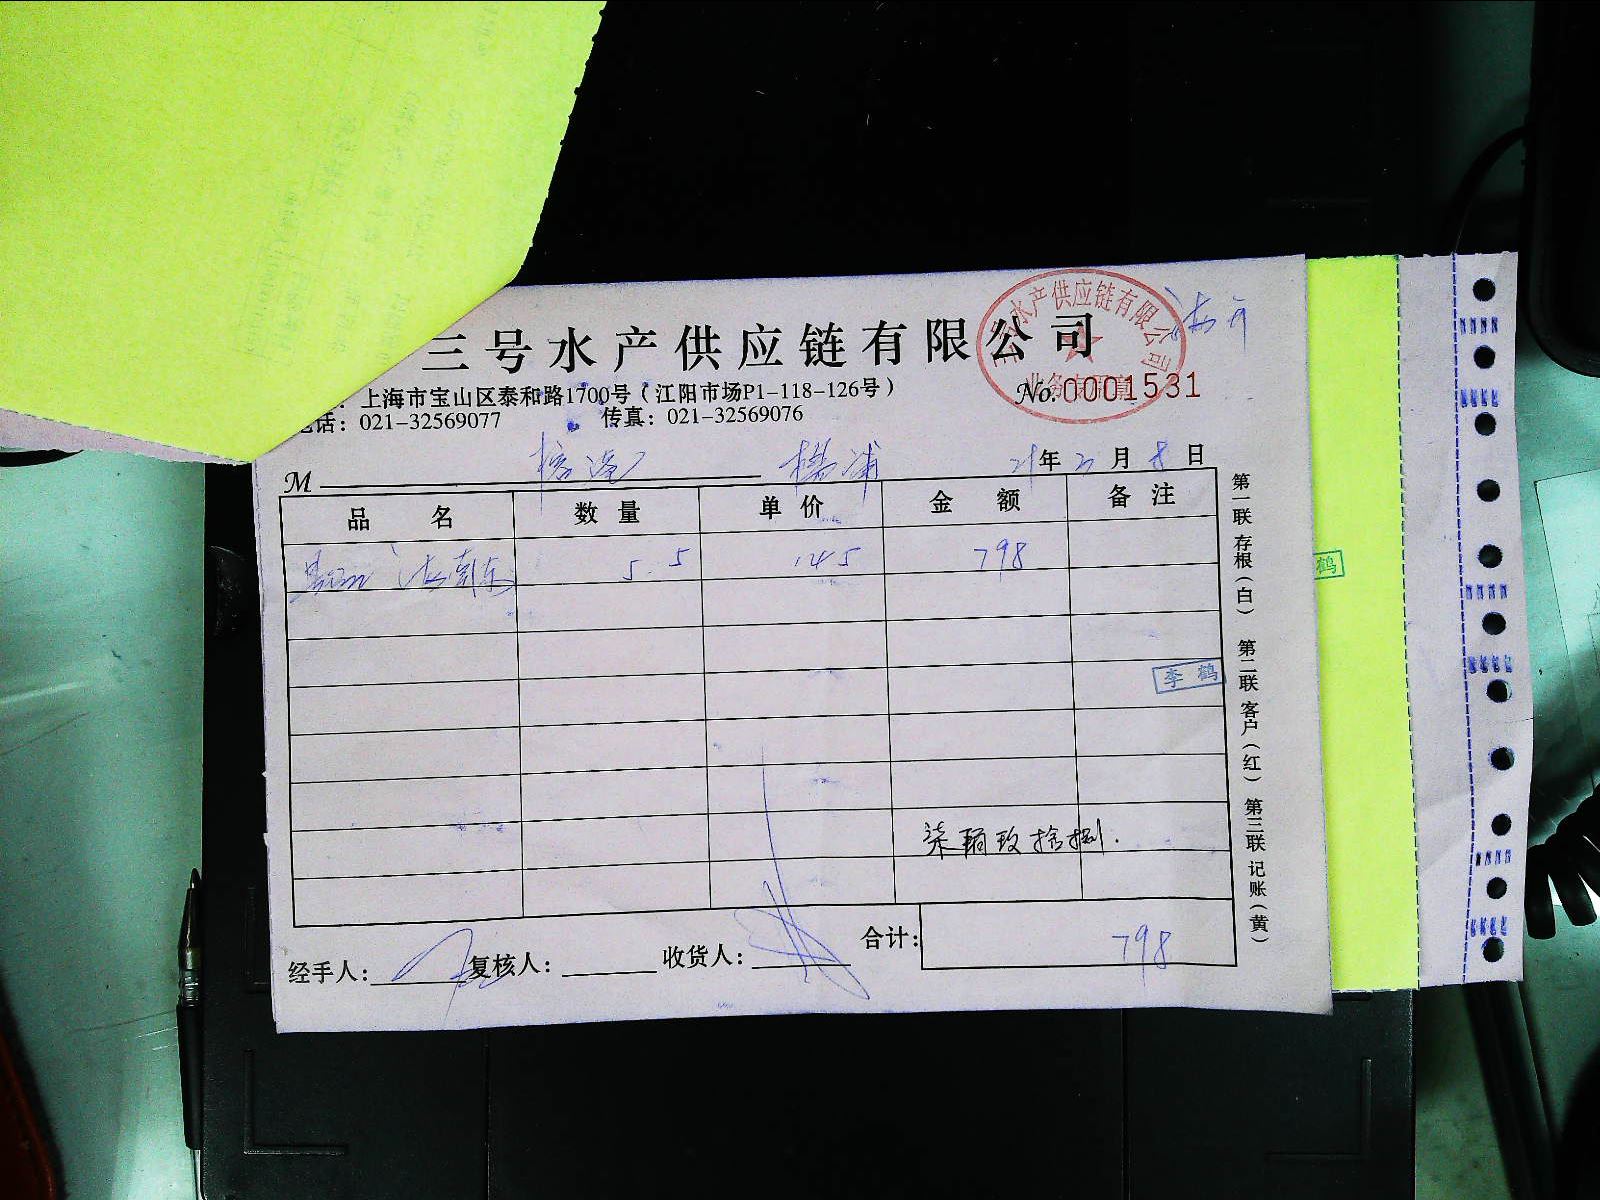 三号水产供应链有限公司
水产供应链有限公司
业务专用章
上海市宝山区泰和路1700号（江阳市场P1-118-126号）
No. 0001531
话：021-32569077 传真：021-32569076
M 杨浦 21年 月 8日
品名 数量 单价 金额 备注
海南东 5.5 145 798
李鹤
鹤
柒佰玖拾捌.
经手人： 复核人： 收货人： 合计： 798
第一联 存根（白） 第二联 客户（红） 第三联 记账（黄）